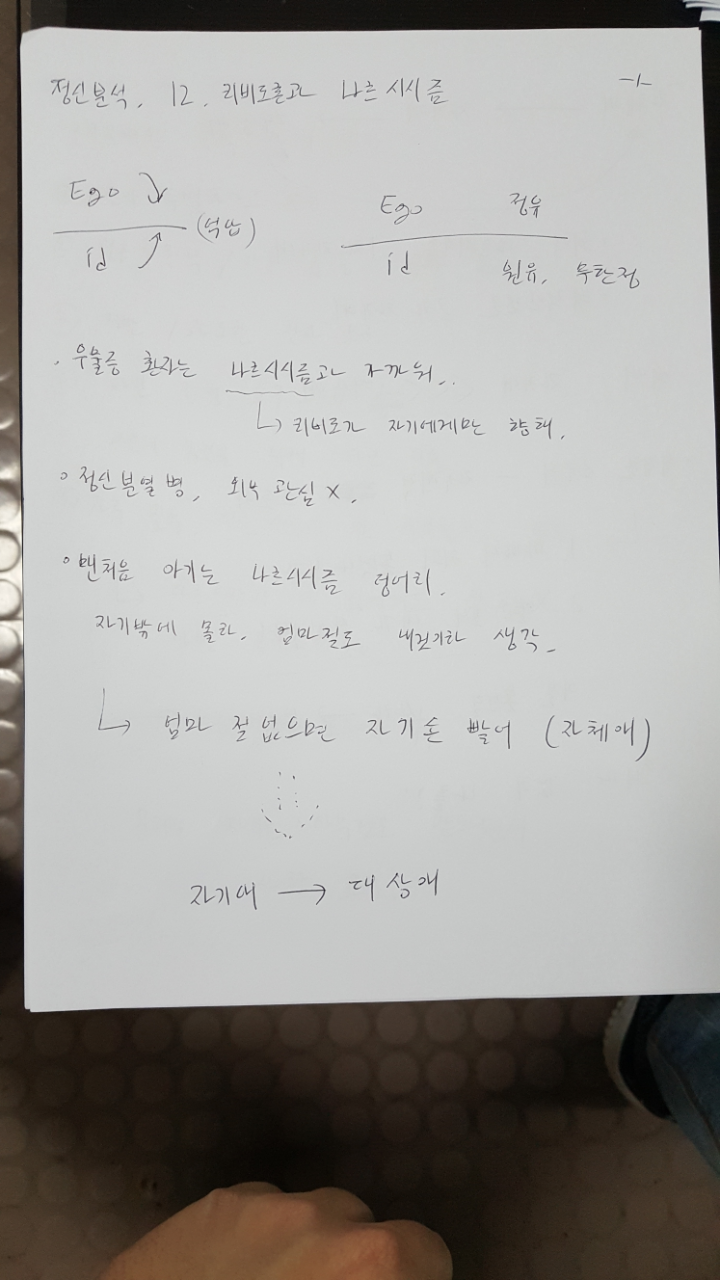 정신분석. 12. 리비도론과 나르시시즘 -1-
Ego
id
(억압)
Ego 점유
id 원유, 무한정
· 우울증 환자는 나르시시즘과 가까워..
↳ 리비도가 자기에게만 향해.
○ 정신분열병, 외부 관심 X.
○ 맨처음 아기는 나르시시즘 덩어리.
자기밖에 몰라. 엄마젖도 내것이라 생각.
↳ 엄마 젖 없으면 자기손 빨어 (자체애)
자기애 → 대상애